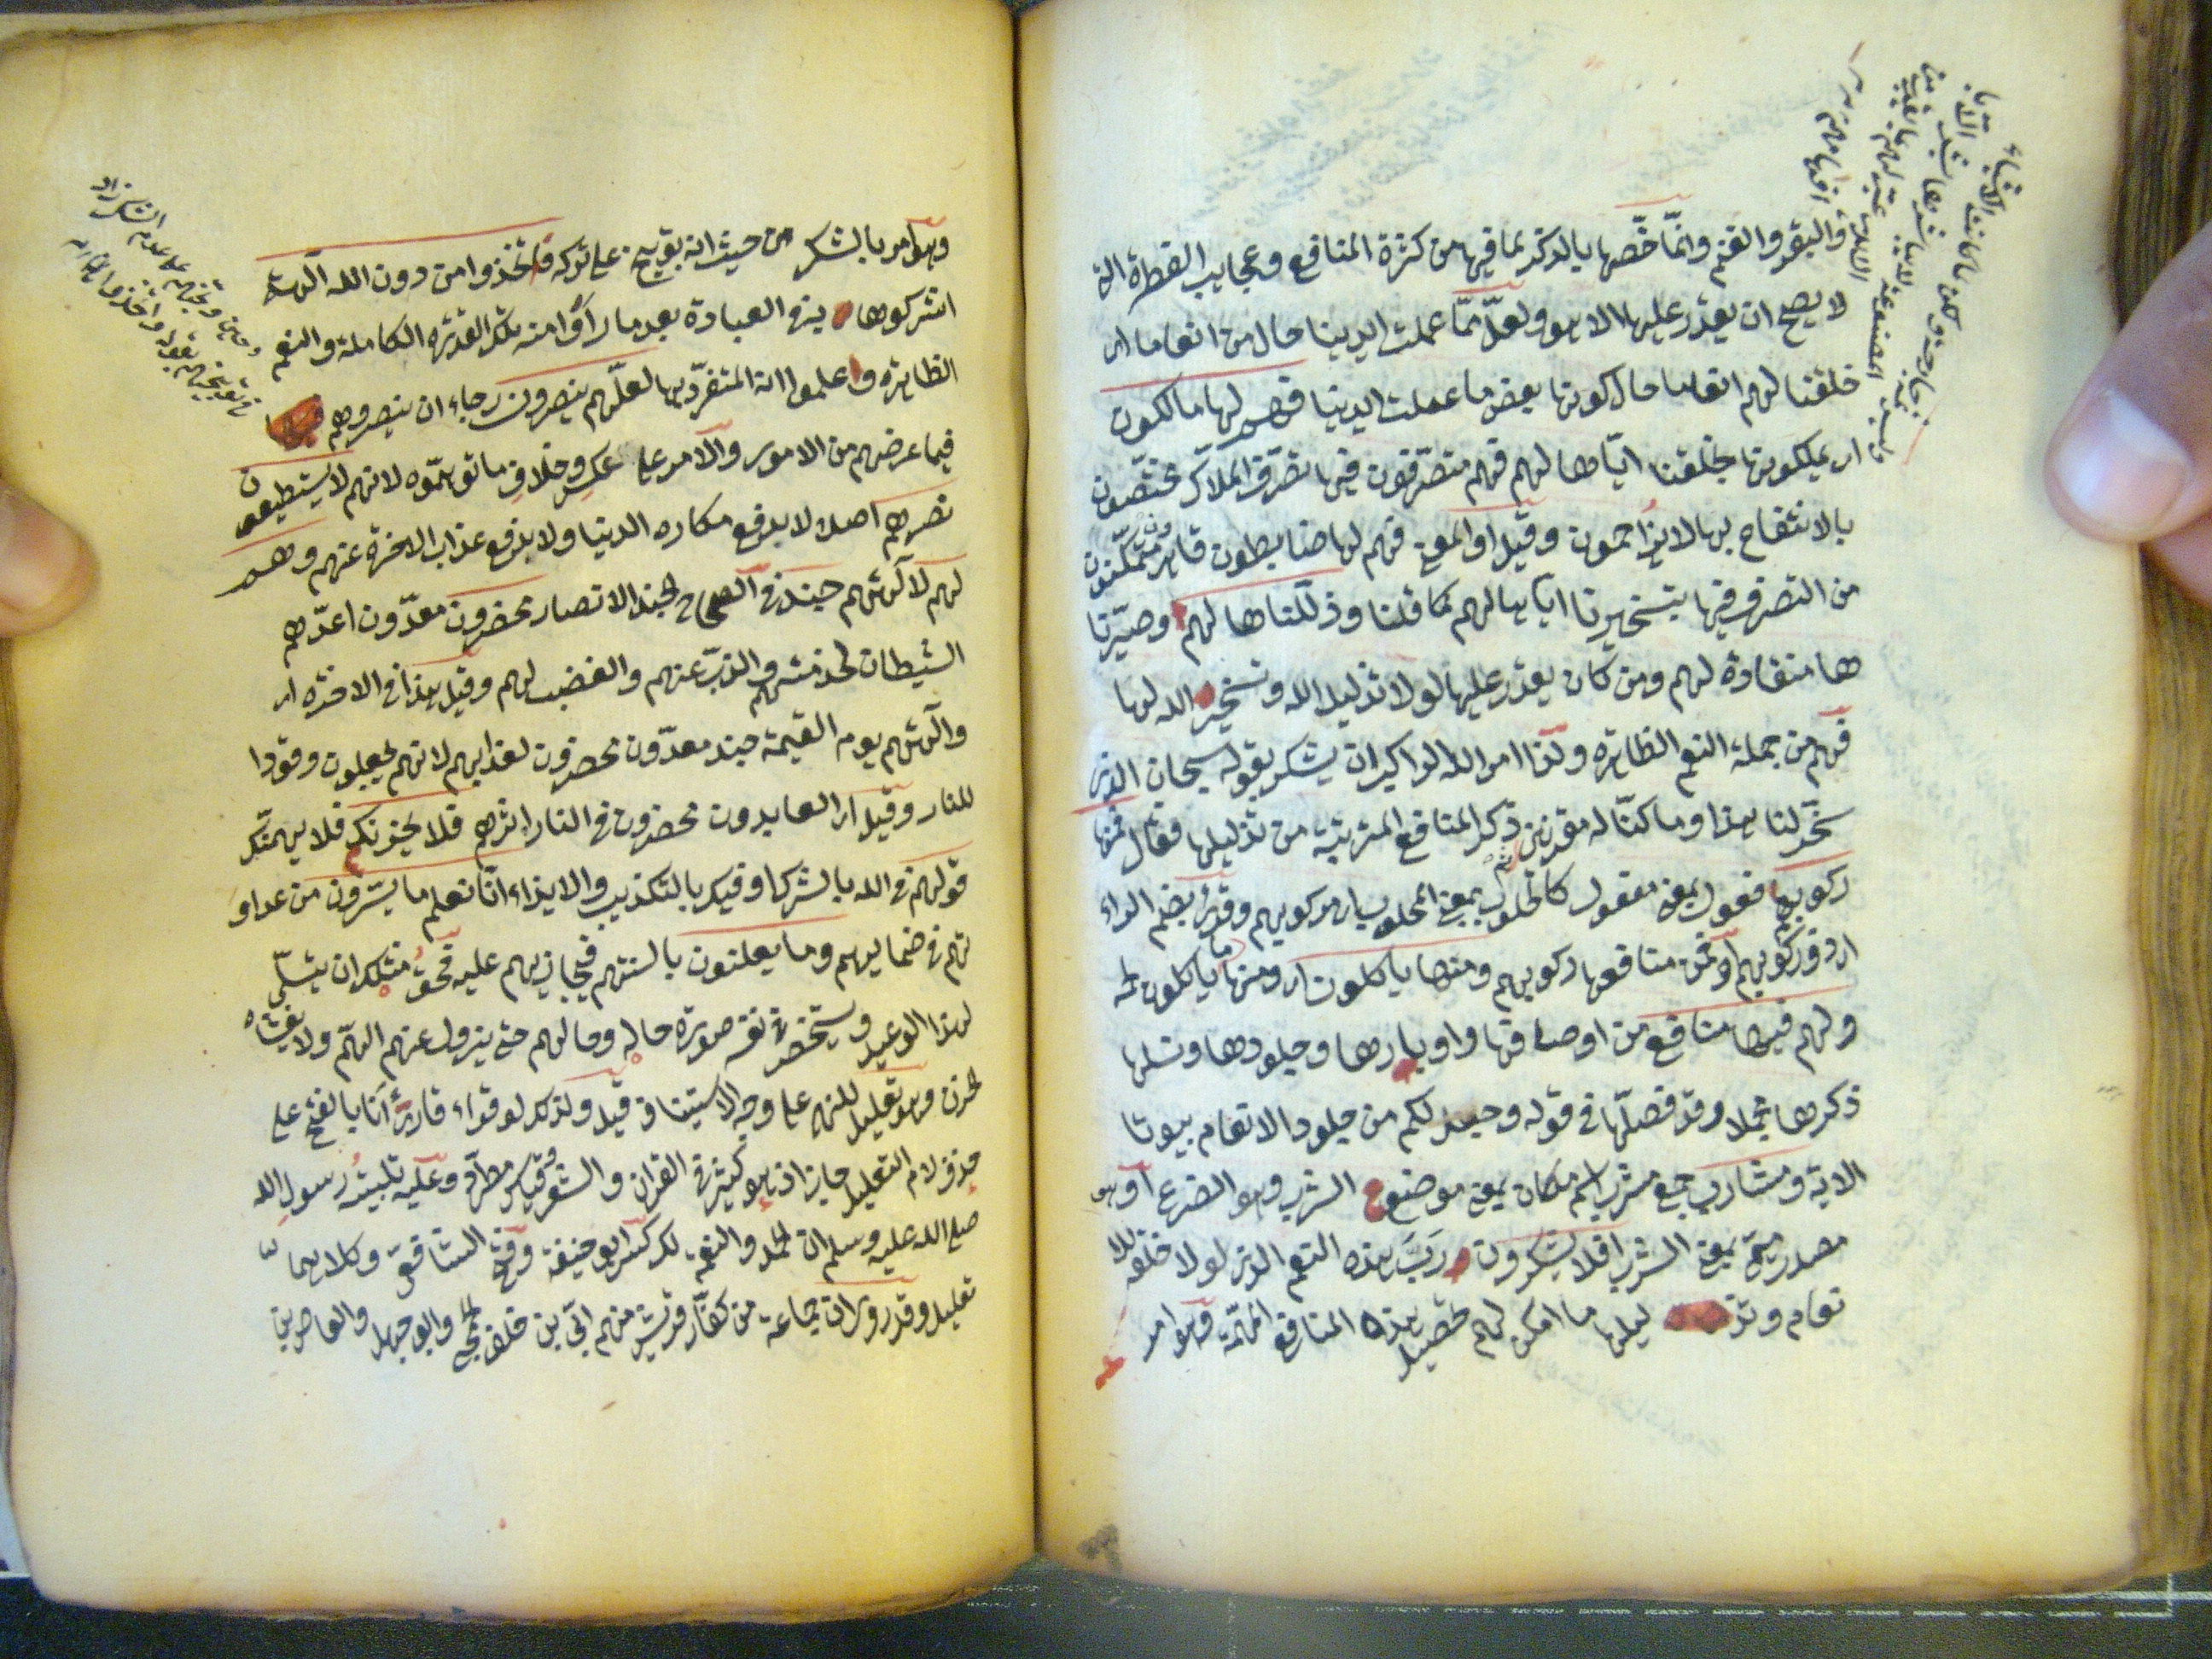 والبقر والغنم وانّما خصّها بالذكر لما فيها من كثرة المنافع وعجايب الفطرة التى
لا يصح ان يقدر عليها الا هو ولعلّ ممّا عملت ايدينا حال من انعاما اى
خلقنا لهم انعاما حال كونها بعض ما عملت ايدينا فهم لها مالكون
اى يملكونها بخلقنا ايّاها لهم فهم متصرّفون فيها تصرّف الملاّك مختصّون
بالانتفاع بها لا يزاحمون وقيل او المعنى فهم لها ضابطون قاهرون متمكّنون
من التصرف فيها بتسخيرنا اياها لهم كما قلنا وذلّلناها لهم وصيّرنا
ها منقادة لهم ومن كان يقدر عليها لولا تذليل الله وتسخير الله لها
فهى من جملة النعم الظاهرة ولذا امر الله الراكب ان يشكر بقوله سبحان الذى
سخّر لنا هذا وما كنّا له مقرنين ثم ذكر المنافع المترتبة من تذليلها فقال فمنها
ركوبهم فعول بمعنى مفعول كالحلوب بمعنى المحلوب اى مركوبهم وقرئ بضم الراء
اى ذو ركوبهم او فمن منافعها ركوبهم ومنها ياكلون اى ومنها ما ياكلون لحمه
ولهم فيها منافع من اوصافها واوبارها وجلودها ونسلها
ذكرها مجملا وقد فصلّها فى قوله وجعل لكم من جلود الانعام بيوتا
الاية ومشارب جمع مشرب اسم مكان بمعنى موضع الشرب وهو الضرع او هو
مصدر ميمى بمعنى الشرب افلا يشكرون ربّ هذه النعم الذى لولا خلقه للا
نعام وتذ ليلها ما امكن لهم تحصيل هذه المنافع المهمّة فهو امر
وهو امر بالشكر من حيث انه تقبيح على تركه فاتخذوا من دون الله آلهة
اشركوها به فى العبادة بعد ما رأوا منه تلك القدرة الكاملة والنعم
الظاهرة واعلموا انه المتفرّد بها لعلّهم ينصرون رجاء ان ينصروهم
فيما عرضهم من الامور والامر على عكس وخلاف ما توهّموه لانهم لا يستطيعون
نصرهم اصلا لا بدفع مكاره الدنيا ولا بدفع عذاب الاخرة عنهم وهم
لهم لآلهتهم جند فى الصحاح الجند الانصار محضرون معدّون اعدّهم
الشيطان لخدمتهم والذبّ عنهم والغضب لهم وقيل هذا فى الاخرة اى
وآلهتهم يوم القيمة جند معدّون محضرون لعذابهم لانهم يجعلون وقودا
للنار وقيل اى العابدون محضرون فى النار اثرهم فلا يحزنك فلا يهمنّك
قولهم فى الله بالشرك او فيك بالتكذيب والايذاء انّا نعلم ما يسرّون من عداو
تهم فى ضمايرهم وما يعلنون بالسنتهم فيجازيهم عليه فحقّ مثلك ان يتسلّى
بهذا الوعيد ويستحضر فى نفسه صورة حاله وحالهم حتى يزول عنهم الهمّ ولا يغشاه
الحزن وهو تعليل للنهى على وجه الاستيناف قيل ولذلك لو قراء قارئ أنّا بالفتح على
حذف لام التعليل جاز اذ هو كثير فى القران والشعر وقياس مطّرد وعليه تلبية رسول الله
صلى الله عليه وسلم ان الحمد والنعمة لك كسر ابو حنيفة وفتح الشافعى وكلاهما
تعليل وقد روى ان جماعة من كفّار قريش منهم ابىّ بن خلف الجمحى وابو جهل والعاص بن